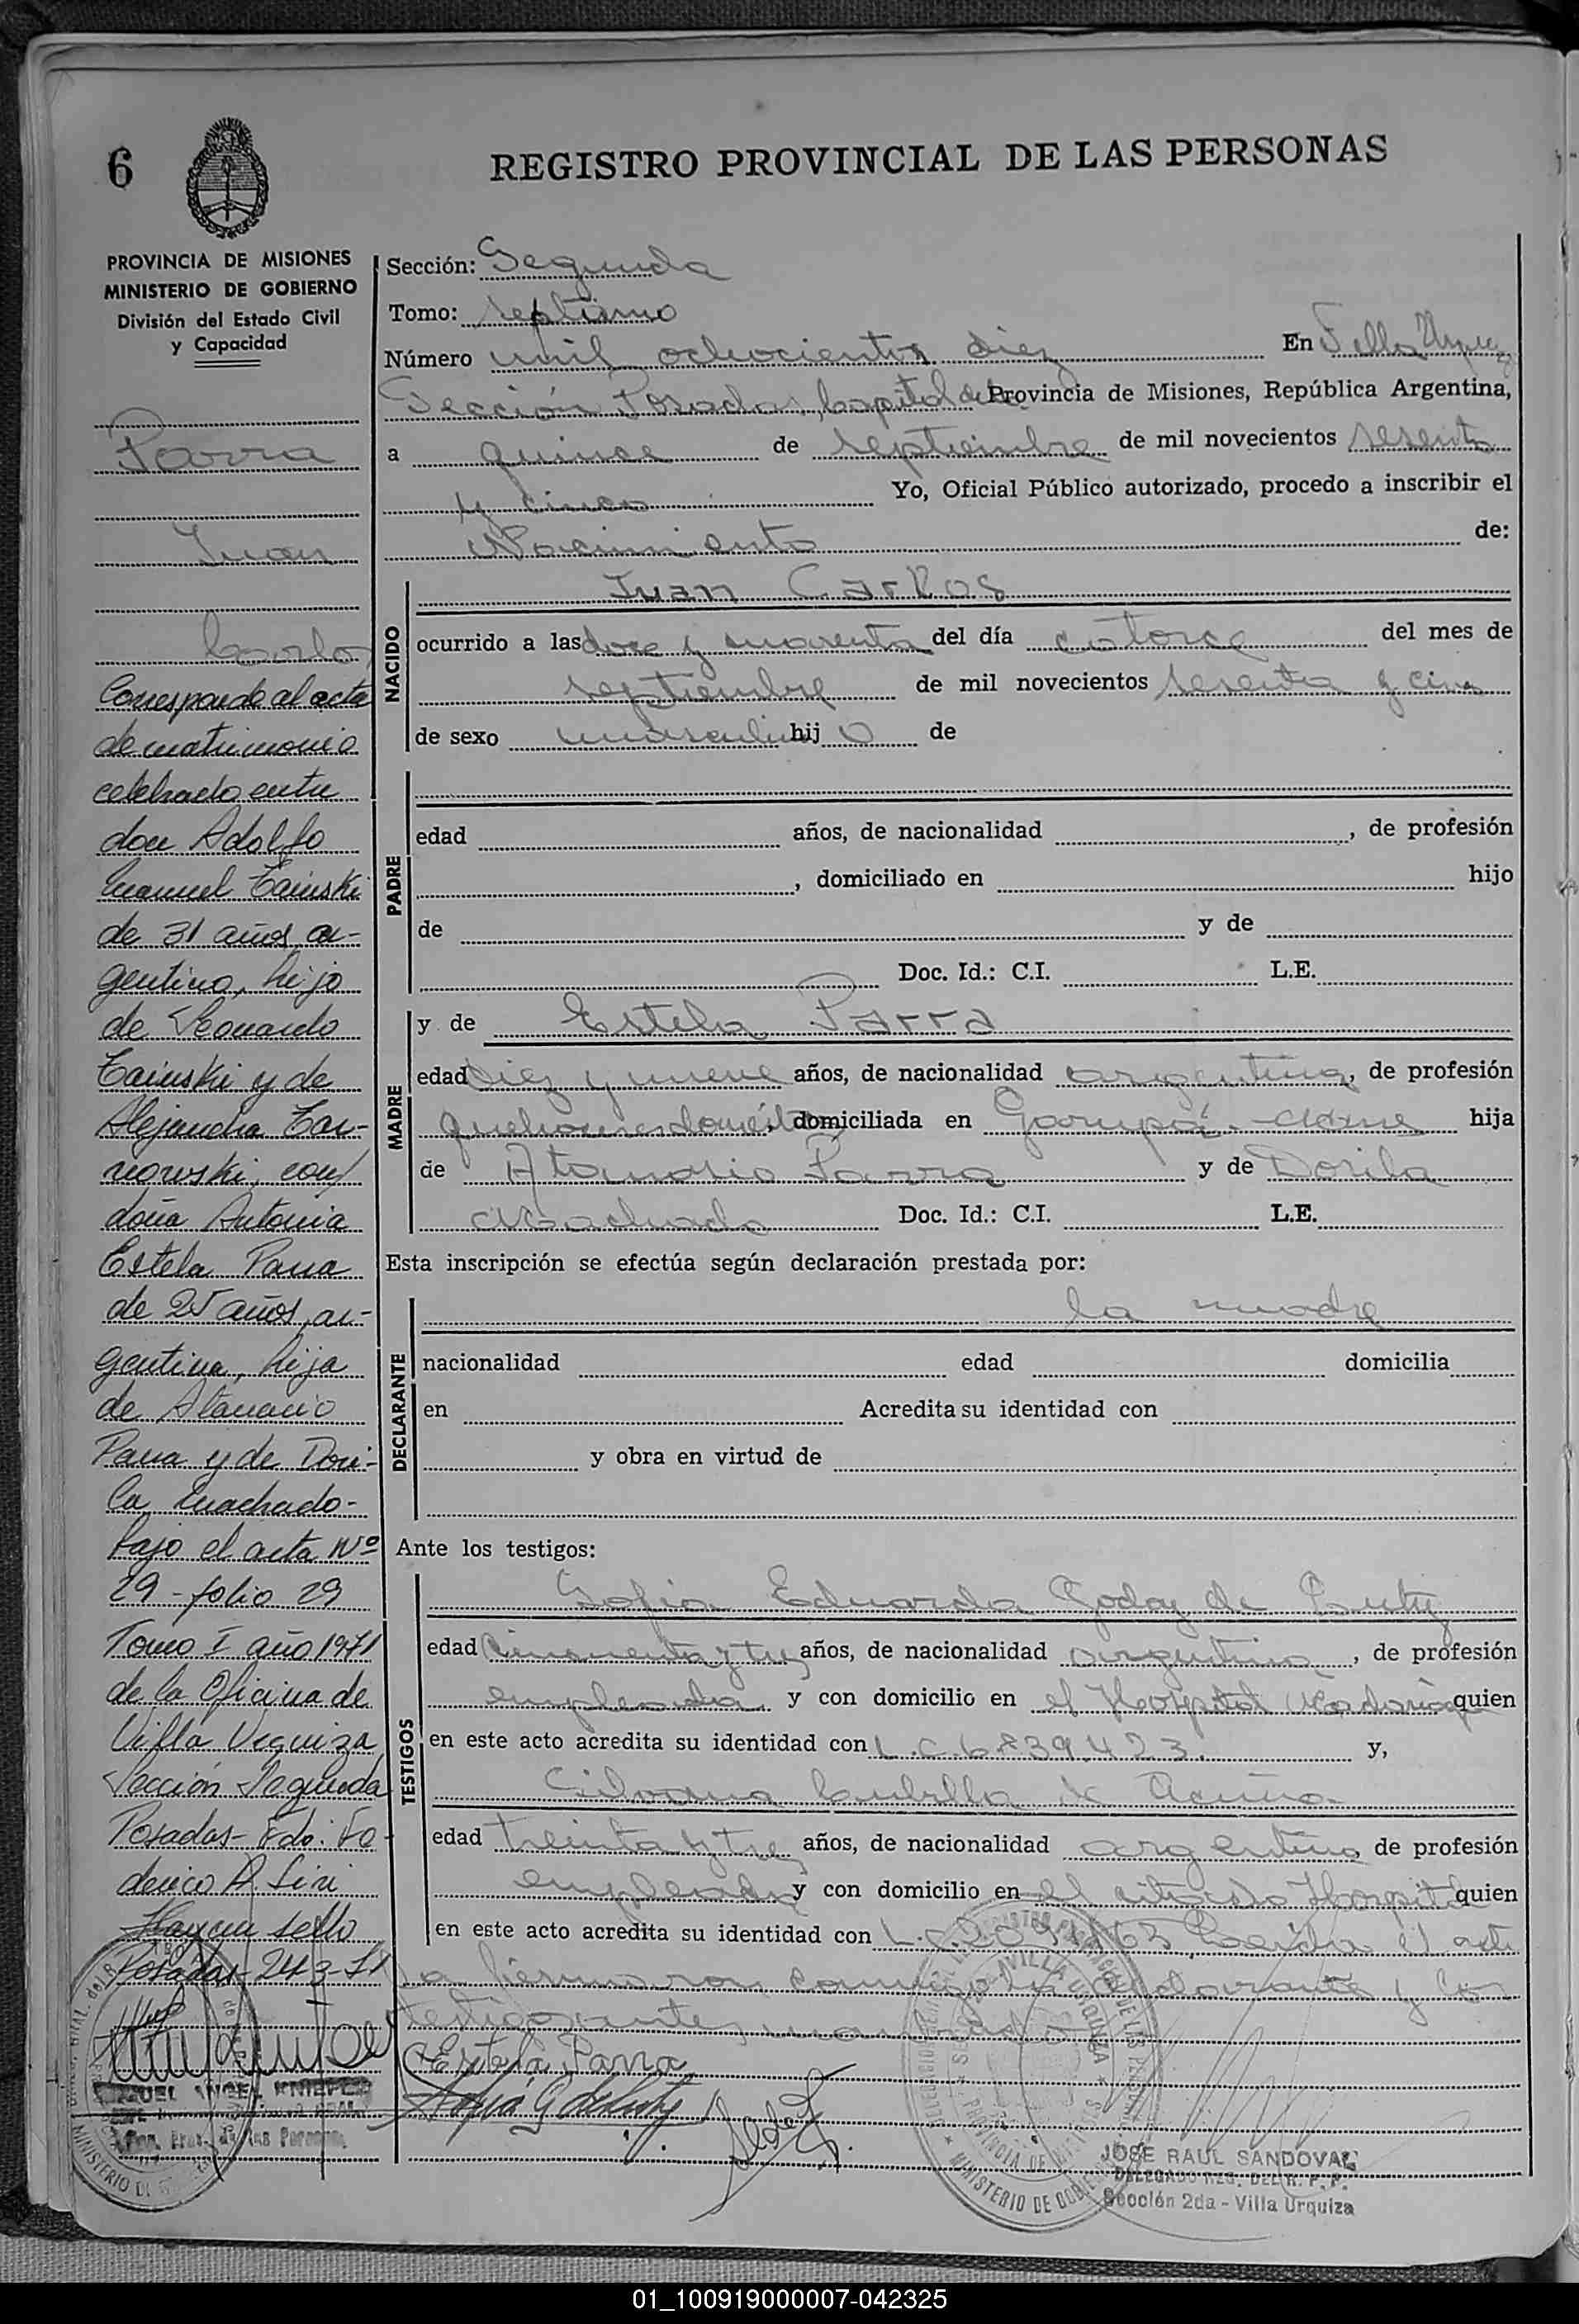 6
REGISTRO PROVINCIAL DE LAS PERSONAS
PROVINCIA DE MISIONES
MINISTERIO DE GOBIERNO
División del Estado Civil
y Capacidad
Parra
Juan
Carlos
Corresponde al acta
de matrimonio
celebrado entre
don Adolfo
Manuel Zainski
de 31 años, ar-
gentino, hijo
de Leonardo
Zainski y de
Alejandra
con
doña Antonia
Estela Parra
de 25 años, ar-
gentina, hija
de Atanacio
Parra y de Dori-
la Machado-
bajo el acta Nº
29 - folio 29
Tomo I año 1971
de la Oficina de
Villa Urquiza
Sección Segunda
Posadas - Fdo:
Hay un sello
Posadas 24-3-71
Sección: Segunda
Tomo: septimo
Número mil ochocientos diez En Villa Urquiza
Sección Posadas, Capital de la Provincia de Misiones, República Argentina,
a quince de septiembre de mil novecientos sesenta
y cinco Yo, Oficial Público autorizado, procedo a inscribir el
Nacimiento de:
NACIDO
Juan Carlos
ocurrido a las doce y cuarenta del día catorce del mes de
septiembre de mil novecientos sesenta y cinco
de sexo masculino hij o de
PADRE
edad años, de nacionalidad , de profesión
, domiciliado en hijo
de y de
Doc. Id.: C.I. L.E.
MADRE
y de Estela Parra
edad diez y nueve años, de nacionalidad argentina, de profesión
domiciliada en Garupá hija
de Atanasio Parra y de Dorila
Machado Doc. Id.: C.I. L.E.
Esta inscripción se efectúa según declaración prestada por:
DECLARANTE
la madre
nacionalidad edad domicilia
en Acredita su identidad con
y obra en virtud de
Ante los testigos:
TESTIGOS
Sofia Eduarda Godoy de
edad cincuenta y tres años, de nacionalidad argentina, de profesión
empleada y con domicilio en el Hospital Madariaga quien
en este acto acredita su identidad con L.C. 6839.423. y,
Silvana Cubilla de Acuña-
edad treinta y tres años, de nacionalidad argentina de profesión
empleada y con domicilio en el citado Hospital quien
en este acto acredita su identidad con L.C. Leida el acta
la firmaron conmigo la declarante y los
testigos antes
Estela Parra
JOSE RAUL SANDOVAL
DELEGADO REG. DEL R. P. P.
Sección 2da - Villa Urquiza
VILLA URQUIZA
MINISTERIO DE GOBIERNO
01_100919000007-042325